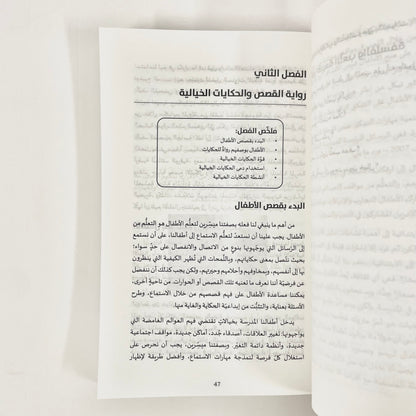 الفصل الثاني
رواية القصص والحكايات الخيالية
ملخّص الفصل:
• البدء بقصص الأطفال
• الأطفال بوصفهم رواةً للحكايات
• قوّة الحكايات الخيالية
• استخدام دمى الحكايات الخيالية
• أنشطة الحكايات الخيالية
البدء بقصص الأطفال
من أهم ما ينبغي لنا فعله بصفتنا ميسّرين لتعلّم الأطفال هو التعلّم من
الأطفال. يجب علينا أن نستعدّ لتعلّم الاستماع إلى أطفالنا، على أن نستمع
إلى الرسائل التي يوجّهونها بنوع من الاتصال والانفصال على حدّ سواء؛
بحيث نتّصل بمعنى حكاياتهم، وباللمحات التي تُظهر الكيفية التي ينظرون
بها إلى أنفسهم، وبمخاوفهم وأحلامهم وحيرتهم. ولكن يجب كذلك أن ننفصل
عن فرضيّة أننا نعرف ما تعنيه تلك القصص أو الحوارات. من ناحيةٍ أخرى،
يمكننا مساعدة الأطفال على فهم قصصهم من خلال الاستماع، وطرح
الأسئلة بعناية، والتثبّت من إبداعية الحكاية والغاية منها.
يدخل أطفالنا المدرسة بخيالاتٍ تقتضي فهم العوالم الغامضة التي
يواجهونها: تغيير العلاقات، أصدقاء جُدد، أماكن جديدة، مواقف اجتماعية
جديدة، وأنظمة دائمة التغيّر. وبصفتنا ميسّرين، يجب أن نحرص على
استغلال كلّ فرصة لنمذجة مهارات الاستماع، وأفضل طريقة لإظهار
47